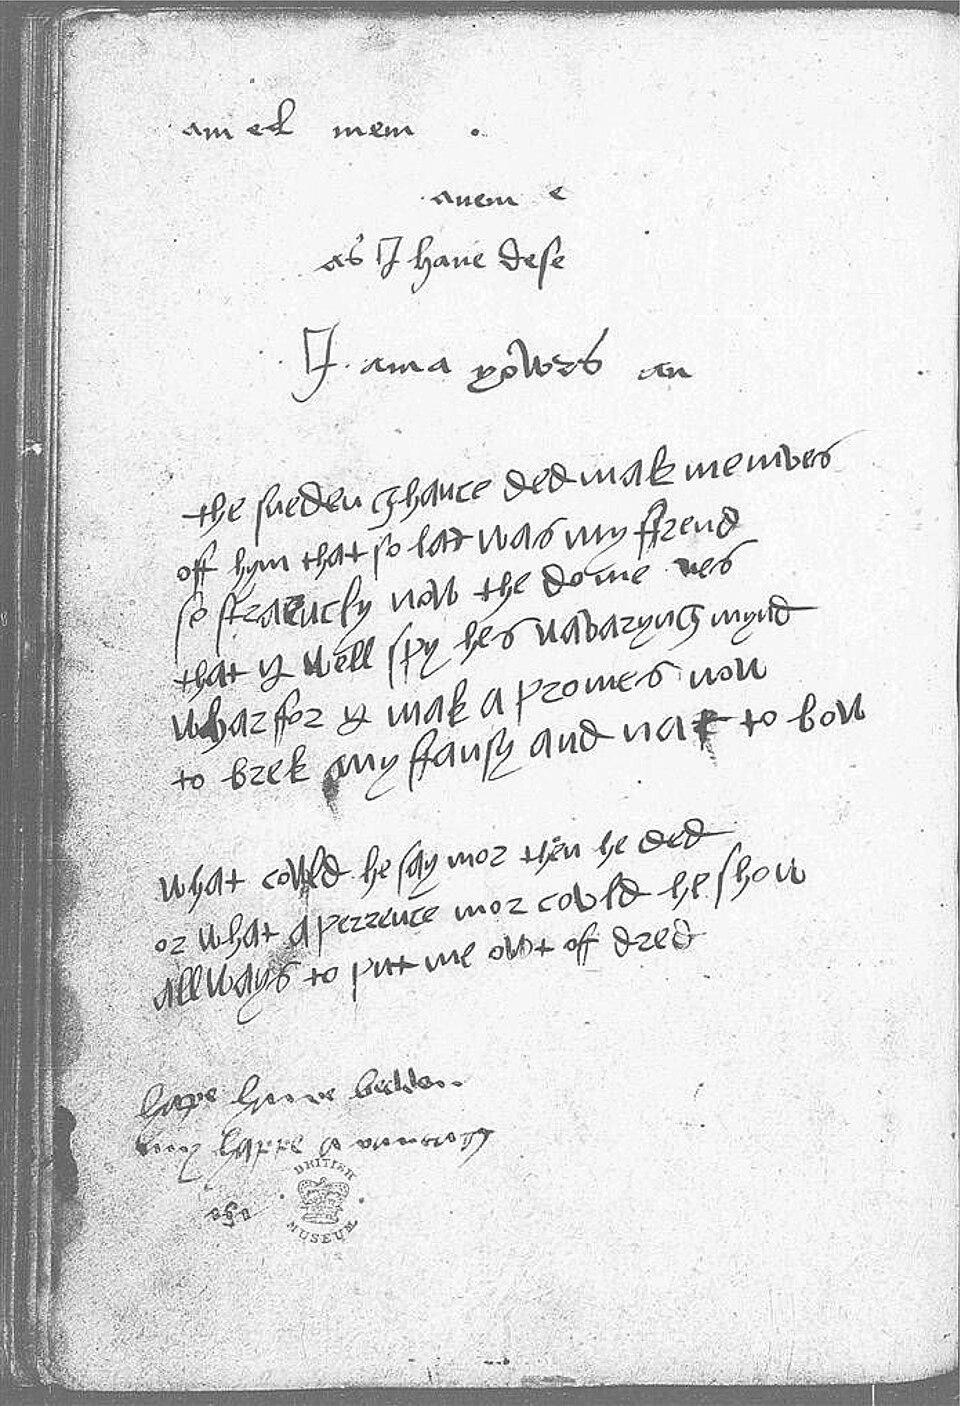 am el mem
anem e
as I haue dese
I ama yowrs an
the sueden ghance ded mak me mves
off hym that so lat was my ffrend
so straenely now the do me ves
that I well spy hes wavaryng mynd
wharffor I mak a promes now
to brek my ffansy and nat to bow
what cowld he say mor then he ded
or what aperrence mor cowld he show
allways to put me owt off dred
hape hawe bedden
my happe a
BRITISH MUSEUM